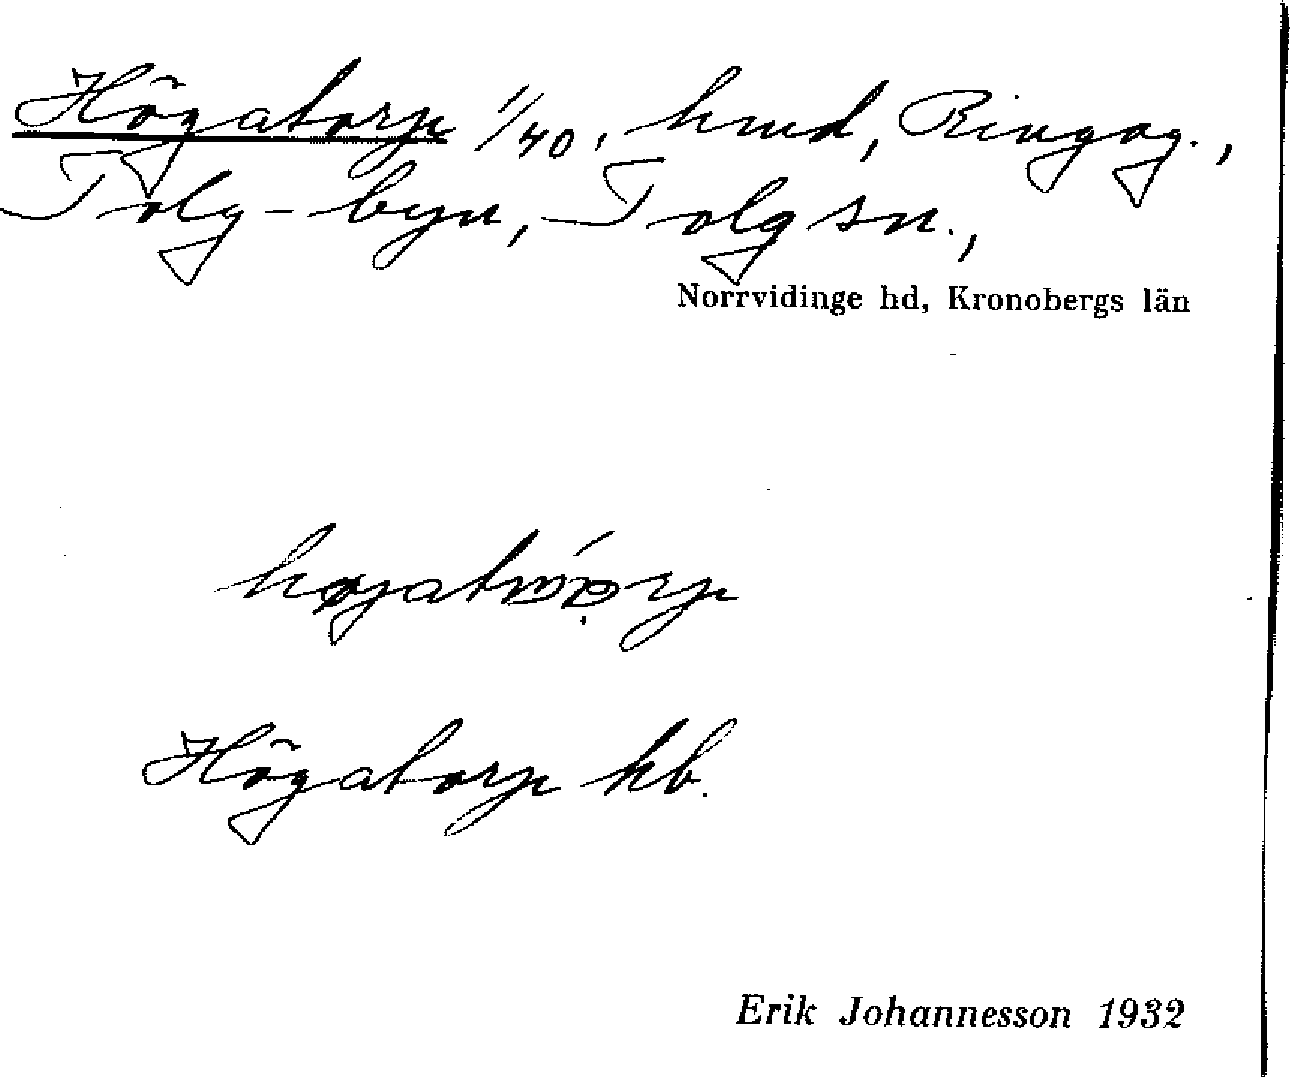 Högatorp 1/40, hmd, Ringag.,
Tolg-byn, Tolg sn.,
Norrvidinge hd, Kronobergs län
Högatorp hb.
Erik Johannesson 1932